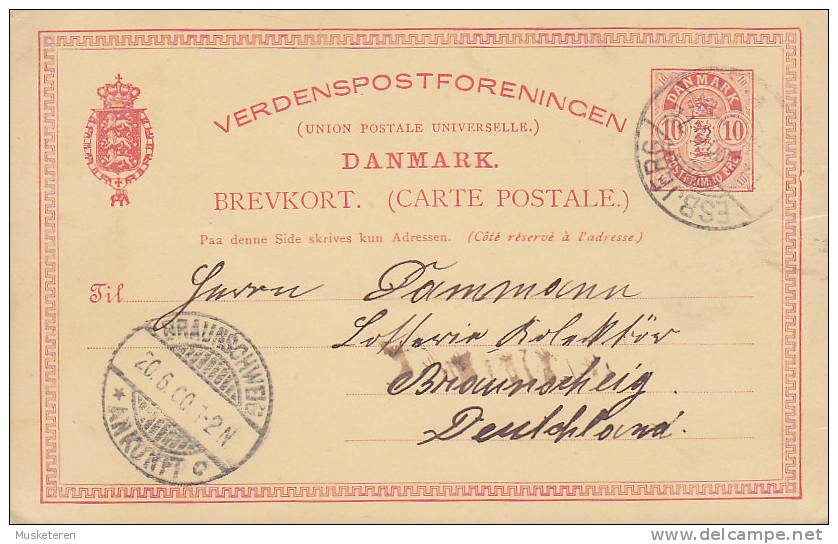 VERDENSPOSTFORENINGEN
(UNION POSTALE UNIVERSELLE.)
DANMARK.
BREVKORT. (CARTE POSTALE.)
Paa denne Side skrives kun Adressen. (Côté réservé à l'adresse.)
DANMARK
10 10
ESBJERG
Til Herrn Dammann
Lotterie Kolektör
Braunscheig.
Deutchland.
BRAUNSCHWEIG
20.6.00.1-2N
* ANKUNFT C
Musketeren
delcampe.net